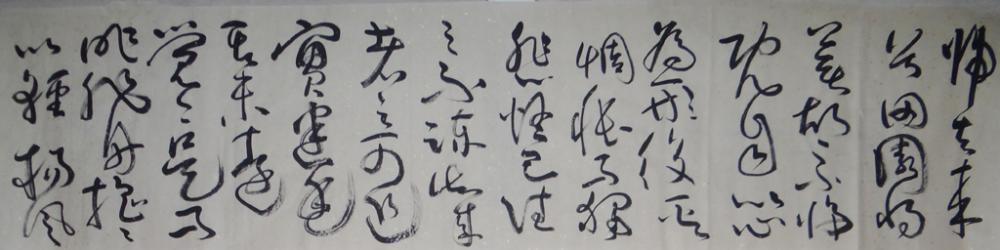 歸去來
兮田園將
蕪胡不歸
既自以心
為形役奚
惆悵而獨
悲悟已往
之不諫知來
者之可追
實迷途
其未遠
覺今是而
昨非舟搖搖
以輕揚風